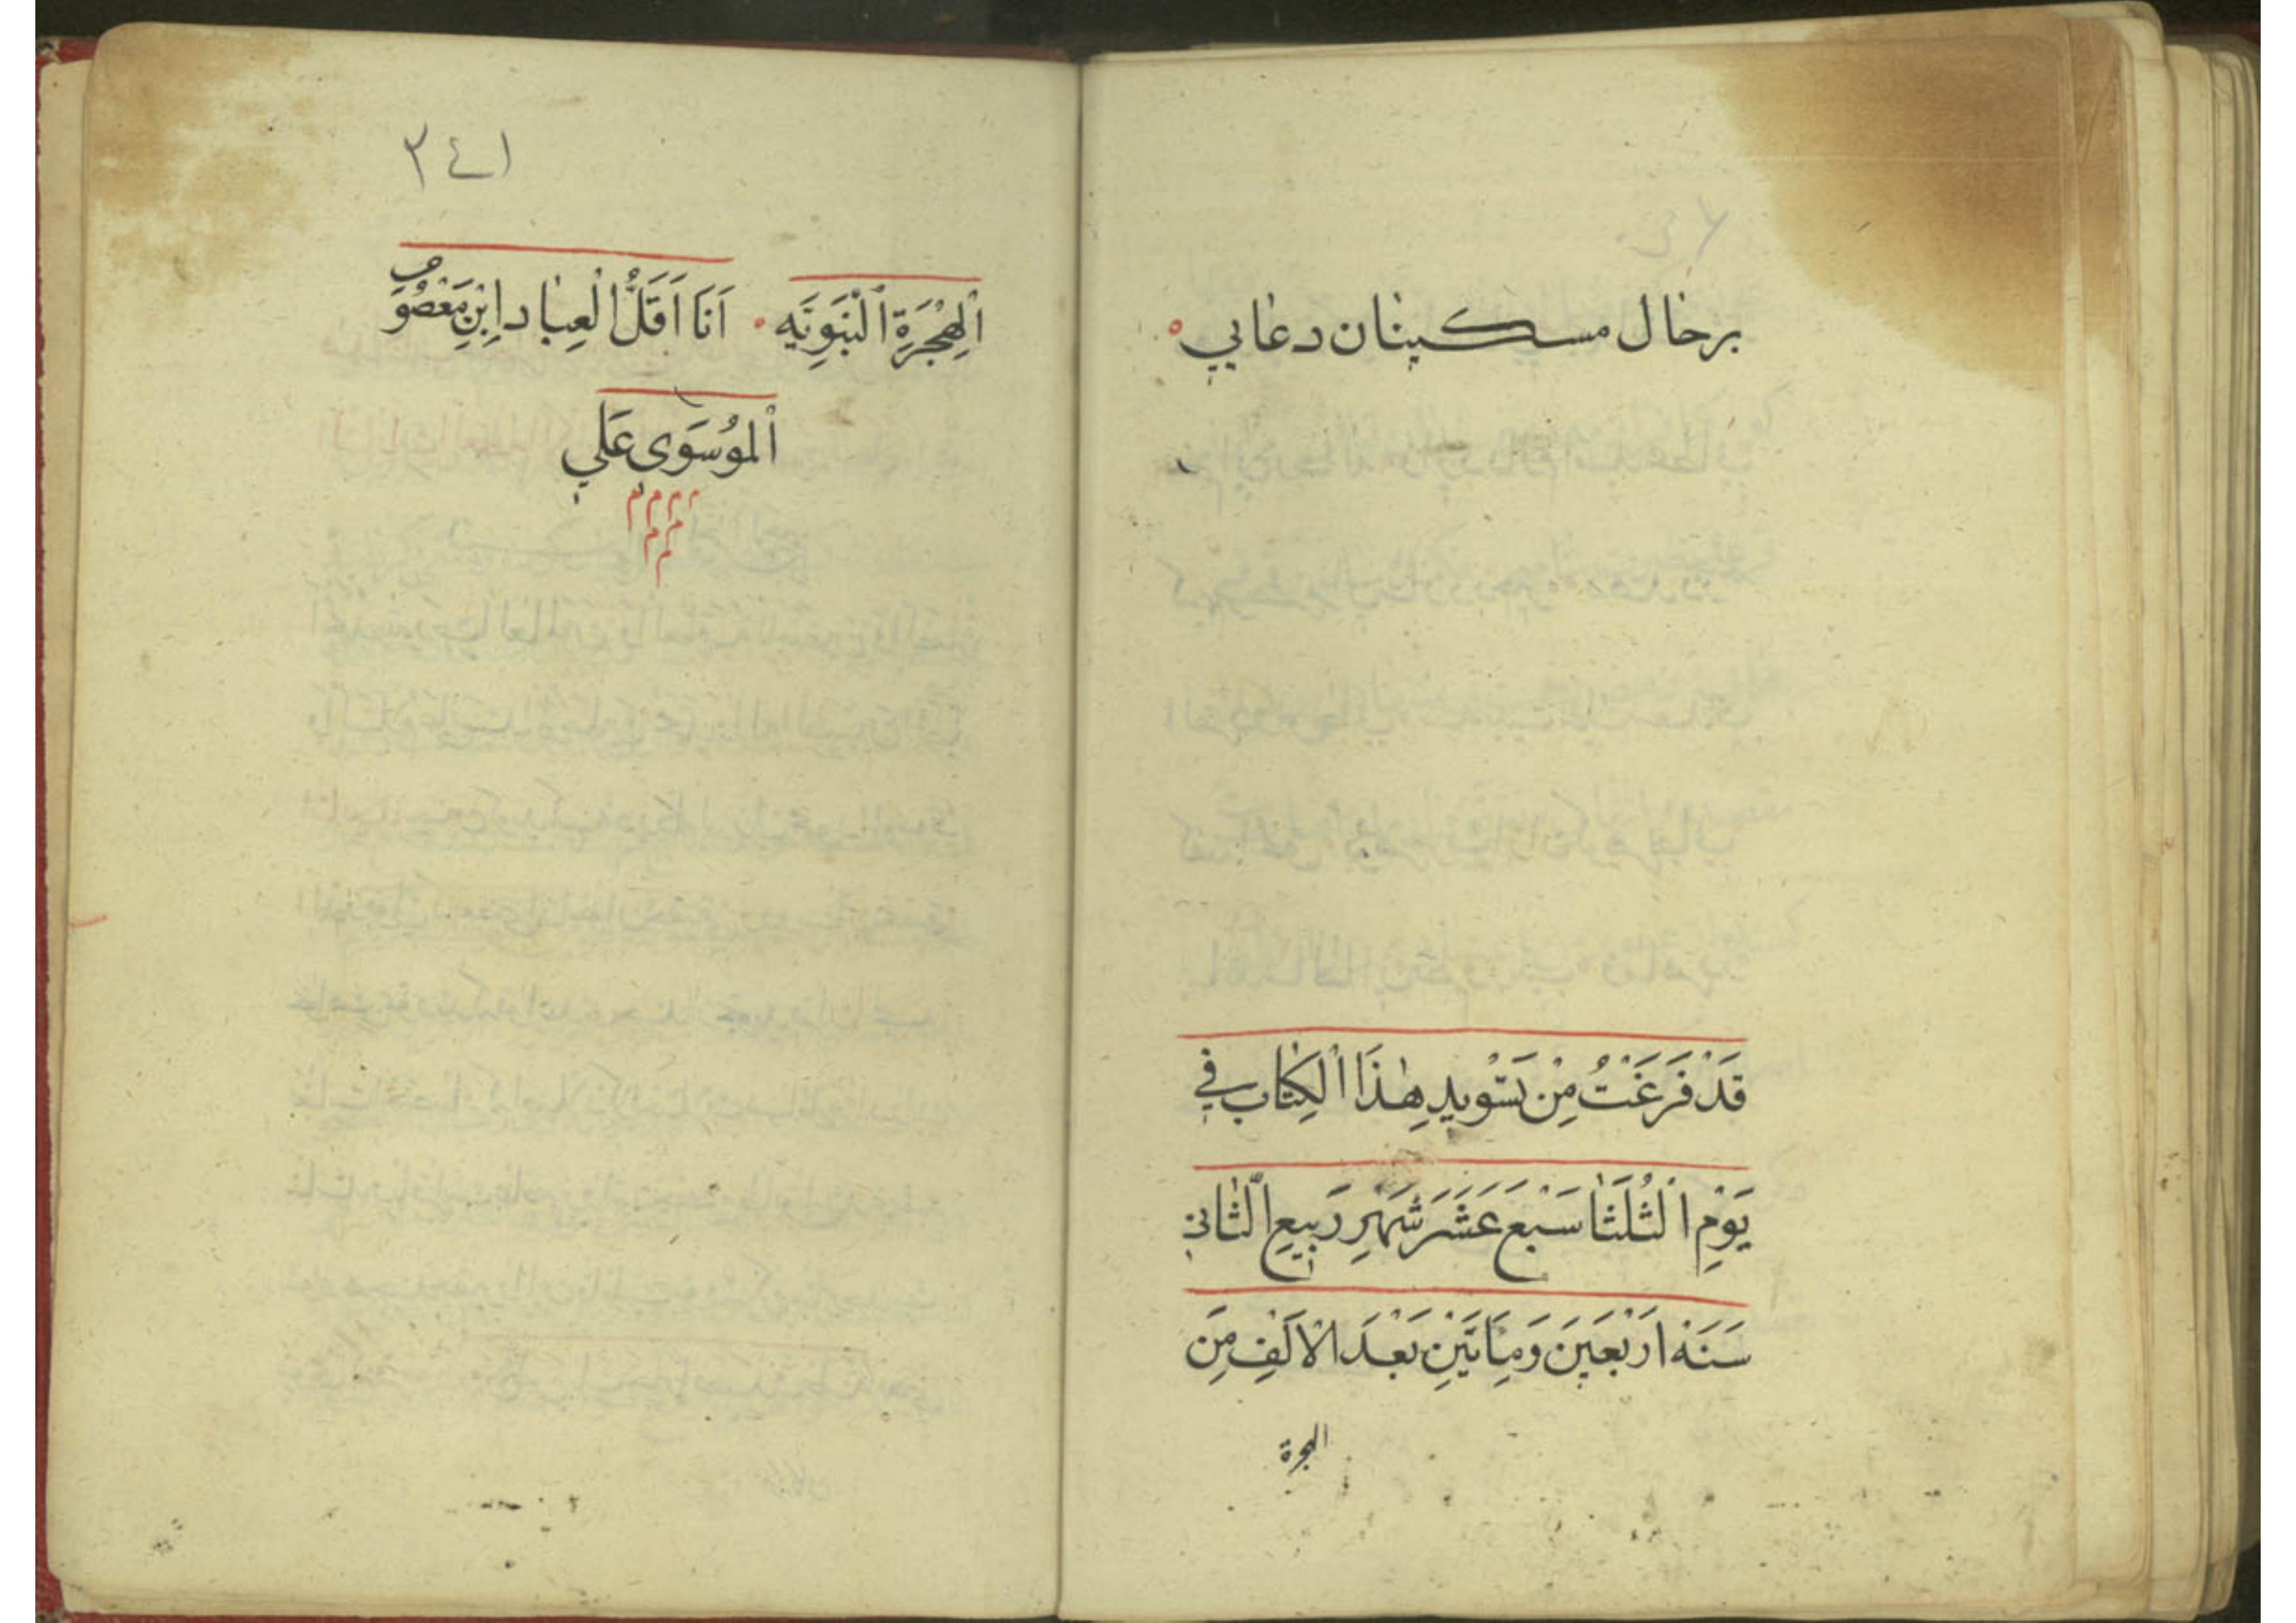 برحال مسكينان دعايي
قَدْ فَرَغْتُ مِنْ تَسْوِيدِ هٰذَا الْكِتٰابِ في
يَوْمِ الثُلَثٰا سَبْعَ عَشَرَ شَهْرِ رَبيعِ الثّٰاني
سَنَهْ اَرْبَعَينَ وَمِاَتَيْنِ بَعْدَ الْاَلْفِ مِنَ
الهجرة
٣٤١
اَلْهِجْرَةِ الْنَبَوِيَه اَنَا اَقَلُّ الْعِبٰاد اِبْنِ مَعْصُوم
اَلموُسَوَي عَلي